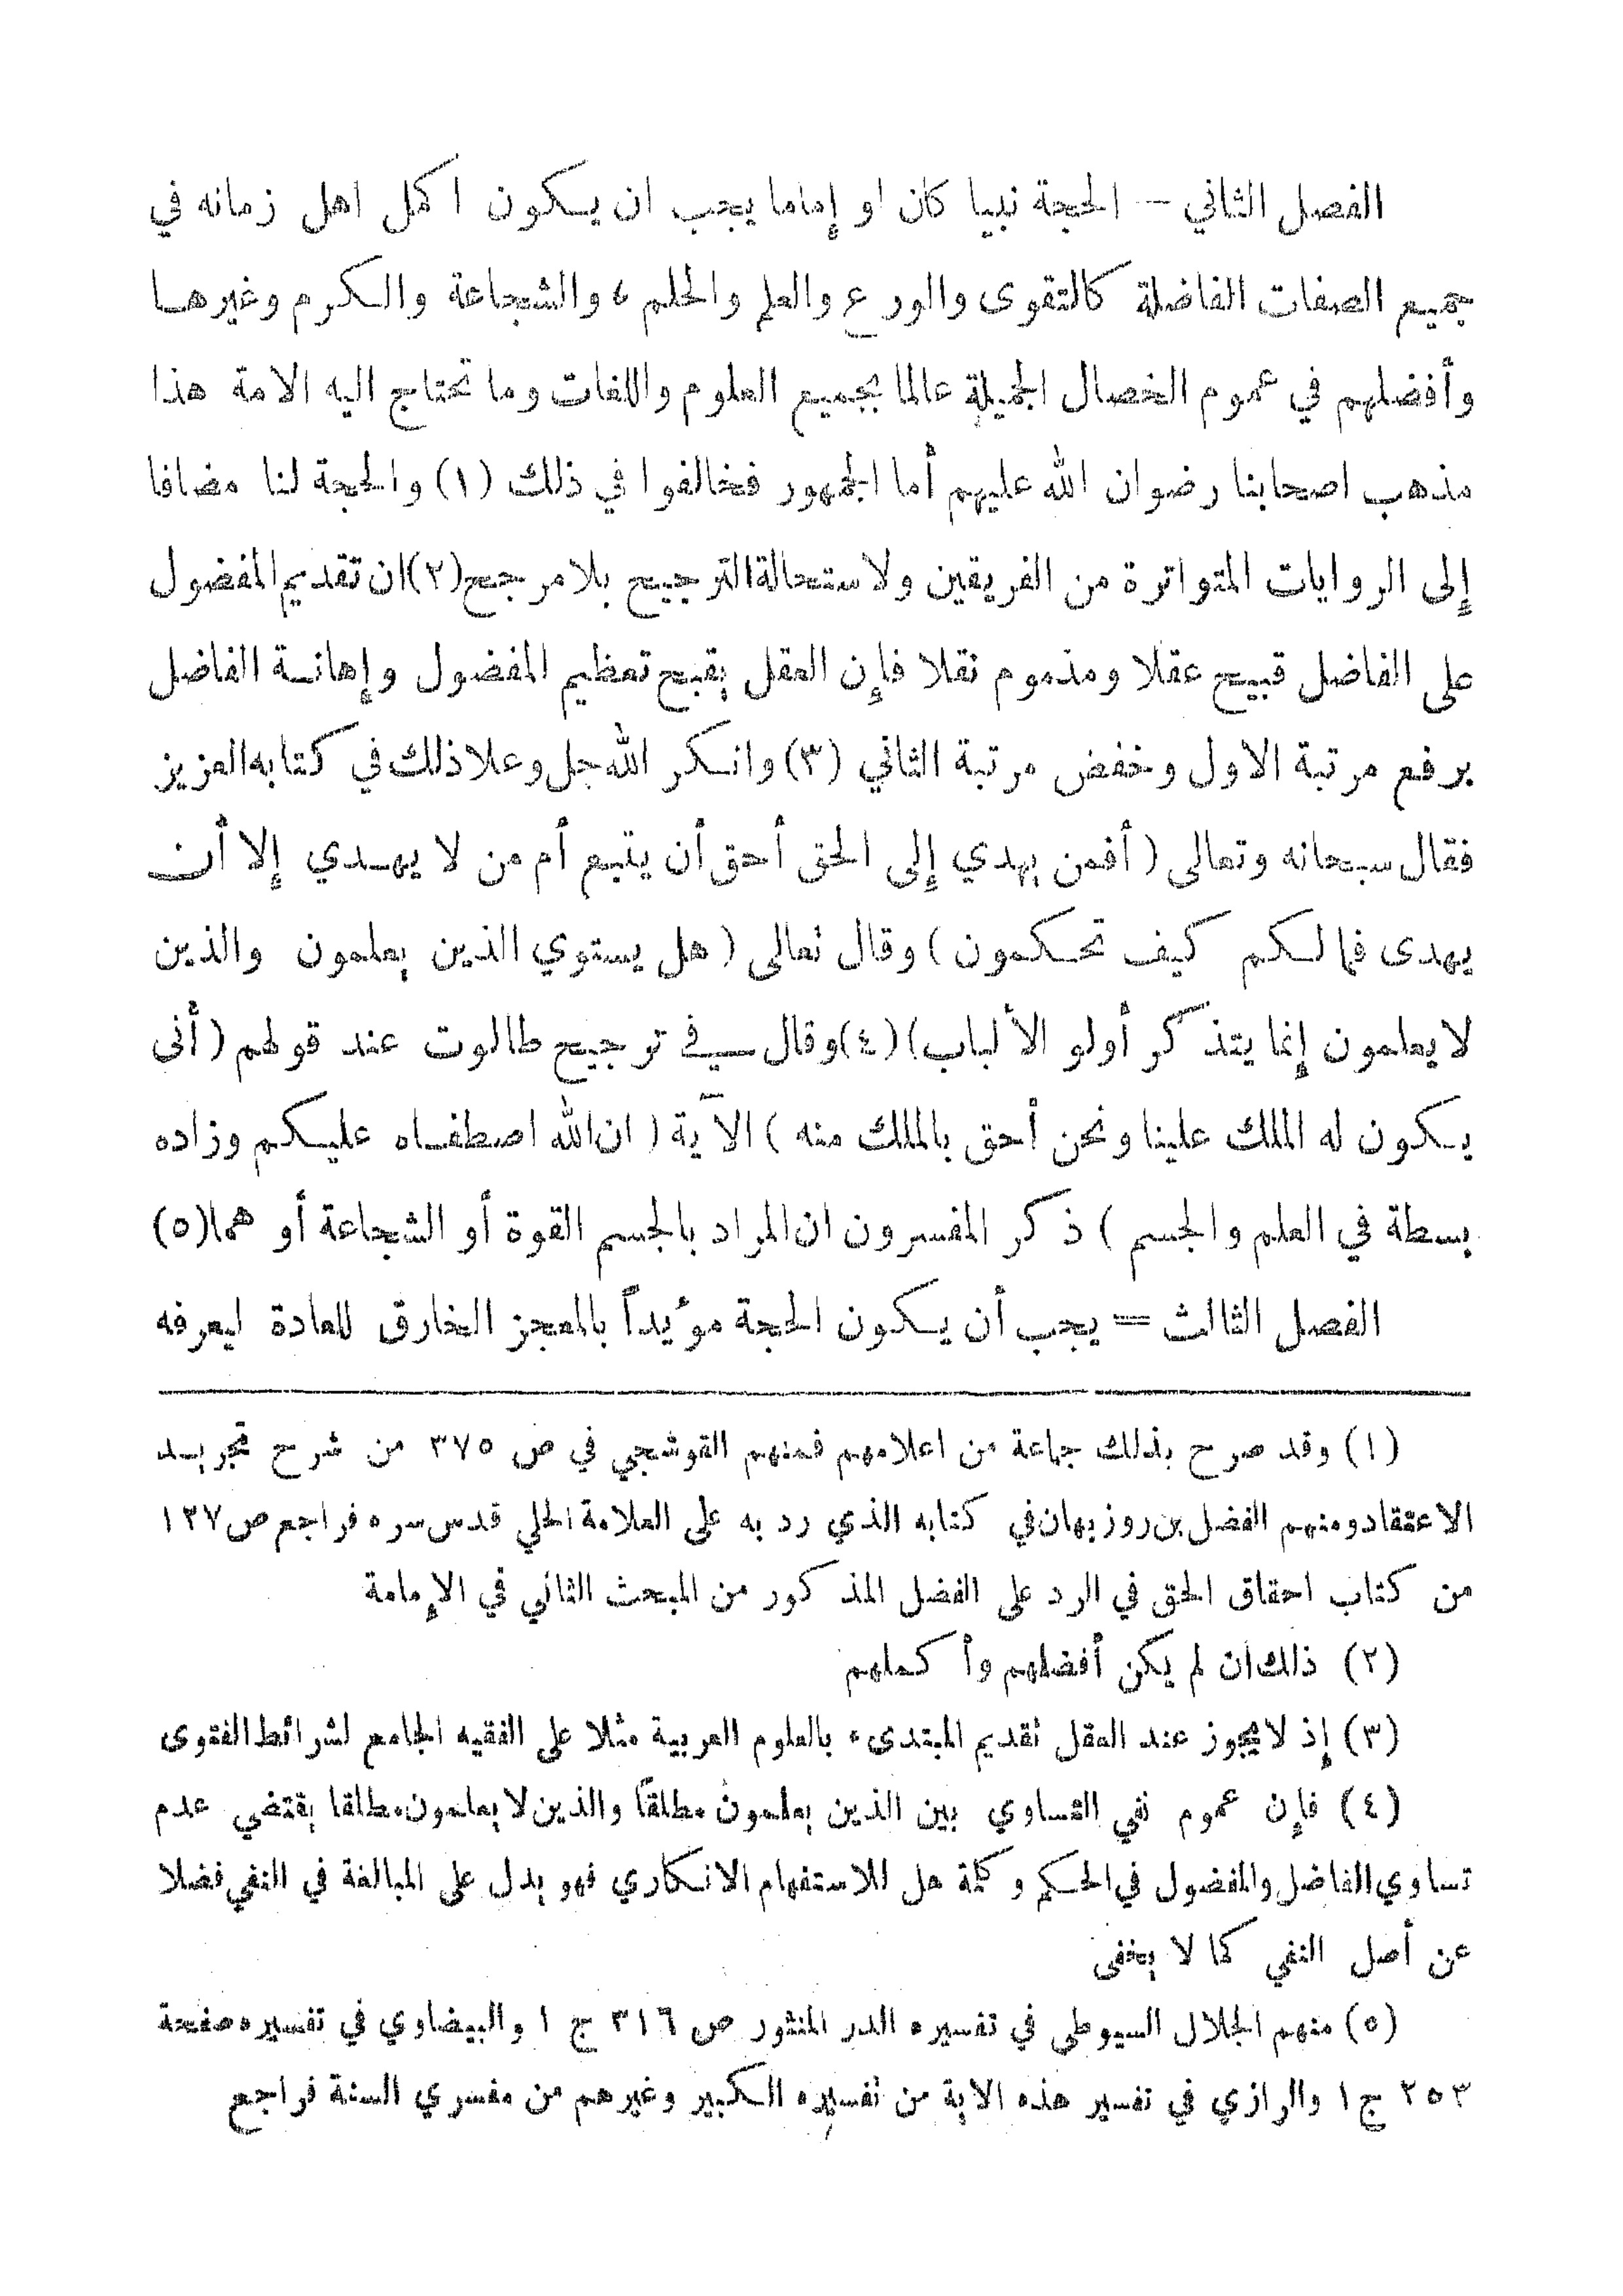 الفصل الثاني — الحجة نبيا كان او إماما يجب ان يكون اكمل اهل زمانه في
جميع الصفات الفاضلة كالتقوى والورع والعلم والحلم ، والشجاعة والكرم وغيرها
وأفضلهم في عموم الخصال الجميلة عالما بجميع العلوم واللغات وما تحتاج اليه الامة هذا
مذهب اصحابنا رضوان الله عليهم أما الجمهور فخالفوا في ذلك (١) والحجة لنا مضافا
إلى الروايات المتواترة من الفريقين ولاستحالة الترجيح بلا مرجح (٢) ان تقديم المفضول
على الفاضل قبيح عقلا ومذموم نقلا فإن العقل يقبح تعظيم المفضول وإهانة الفاضل
برفع مرتبة الاول وخفض مرتبة الثاني (٣) وانكر الله جل وعلا ذلك في كتابه العزيز
فقال سبحانه وتعالى ( أفمن يهدي إلى الحق أحق أن يتبع أم من لا يهدي إلا أن
يهدى فما لكم كيف تحكمون ) وقال تعالى ( هل يستوي الذين يعلمون والذين
لا يعلمون إنما يتذكر أولو الألباب) (٤) وقال في ترجيح طالوت عند قولهم ( أنى
يكون له الملك علينا ونحن أحق بالملك منه ) الآية ( ان الله اصطفاه عليكم وزاده
بسطة في العلم والجسم ) ذكر المفسرون ان المراد بالجسم القوة أو الشجاعة أو هما (٥)
الفصل الثالث = يجب أن يكون الحجة مؤيداً بالمعجز الخارق للعادة ليعرفه
(١) وقد صرح بذلك جماعة من اعلامهم فمنهم القوشجي في ص ٣٧٥ من شرح تجريد
الاعتقاد ومنهم الفضل بن روزبهان في كتابه الذي رد به على العلامة الحلي قدس سره فراجع ص ١٣٧
من كتاب احقاق الحق في الرد على الفضل المذكور من المبحث الثاني في الإمامة
(٢) ذلك ان لم يكن أفضلهم وأكملهم
(٣) إذ لا يجوز عند العقل تقديم المبتدىء بالعلوم العربية مثلا على الفقيه الجامع لشرائط الفتوى
(٤) فإن عموم نفي التساوي بين الذين يعلمون مطلقاً والذين لا يعلمون مطلقا يقتضي عدم
تساوي الفاضل والمفضول في الحكم وكلمة هل للاستفهام الانكاري فهو يدل على المبالغة في النفي فضلا
عن أصل النفي كما لا يخفى
(٥) منهم الجلال السيوطي في تفسيره الدر المنثور ص ٣١٦ ج ١ والبيضاوي في تفسيره صفحة
٢٥٣ ج ١ والرازي في تفسير هذه الاية من تفسيره الكبير وغيرهم من مفسري السنة فراجع